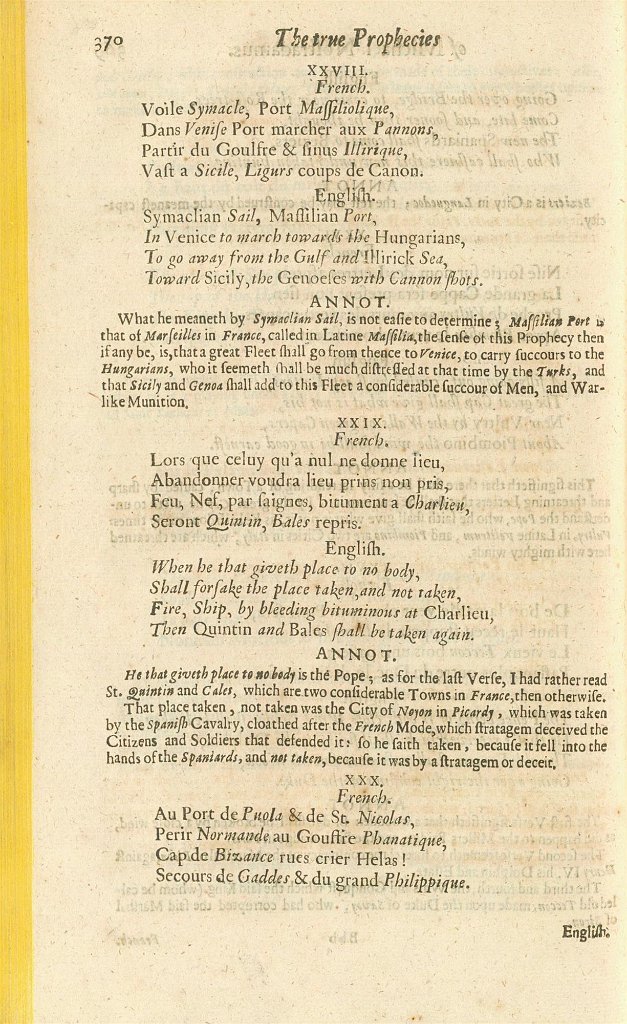 370 The true Prophecies
XXVIII.
French.
Voile Symacle, Port Maſſiliolique,
Dans Veniſe Port marcher aux Pannons,
Partir du Goulfre & ſinus Illirique,
Vaſt a Sicile, Ligurs coups de Canon.
Engliſh.
Symaclian Sail, Maſſilian Port,
In Venice to march towards the Hungarians,
To go away from the Gulf and Illirick Sea,
Toward Sicily, the Genoeſes with Cannon ſhots.
ANNOT.
What he meaneth by Symaclian Sail, is not eaſie to determine; Maſſilian Port is
that of Marſeilles in France, called in Latine Maſſilia, the ſenſe of this Prophecy then
if any be, is, that a great Fleet ſhall go from thence to Venice, to carry ſuccours to the
Hungarians, who it ſeemeth ſhall be much diſtreſſed at that time by the Turks, and
that Sicily and Genoa ſhall add to this Fleet a conſiderable ſuccour of Men, and War-
like Munition.
XXIX.
French.
Lors que celuy qu'a nul ne donne lieu,
Abandonner voudra lieu prins non pris,
Feu, Nef, par ſaignes, bitument a Charlieu,
Seront Quintin, Bales repris.
Engliſh.
When he that giveth place to no body,
Shall forſake the place taken, and not taken,
Fire, Ship, by bleeding bituminous at Charlieu,
Then Quintin and Bales ſhall be taken again.
ANNOT.
He that giveth place to no body is the Pope; as for the laſt Verſe, I had rather read
St. Quintin and Cales, which are two conſiderable Towns in France, then otherwiſe.
That place taken, not taken was the City of Noyon in Picardy, which was taken
by the Spaniſh Cavalry, cloathed after the French Mode, which ſtratagem deceived the
Citizens and Soldiers that defended it: ſo he ſaith taken, becauſe it fell into the
hands of the Spaniards, and not taken, becauſe it was by a ſtratagem or deceit.
XXX.
French.
Au Port de Puola & de St. Nicolas,
Perir Normande au Gouffre Phanatique,
Cap de Bizance rues crier Helas!
Secours de Gaddes & du grand Philippique.
Engliſh.